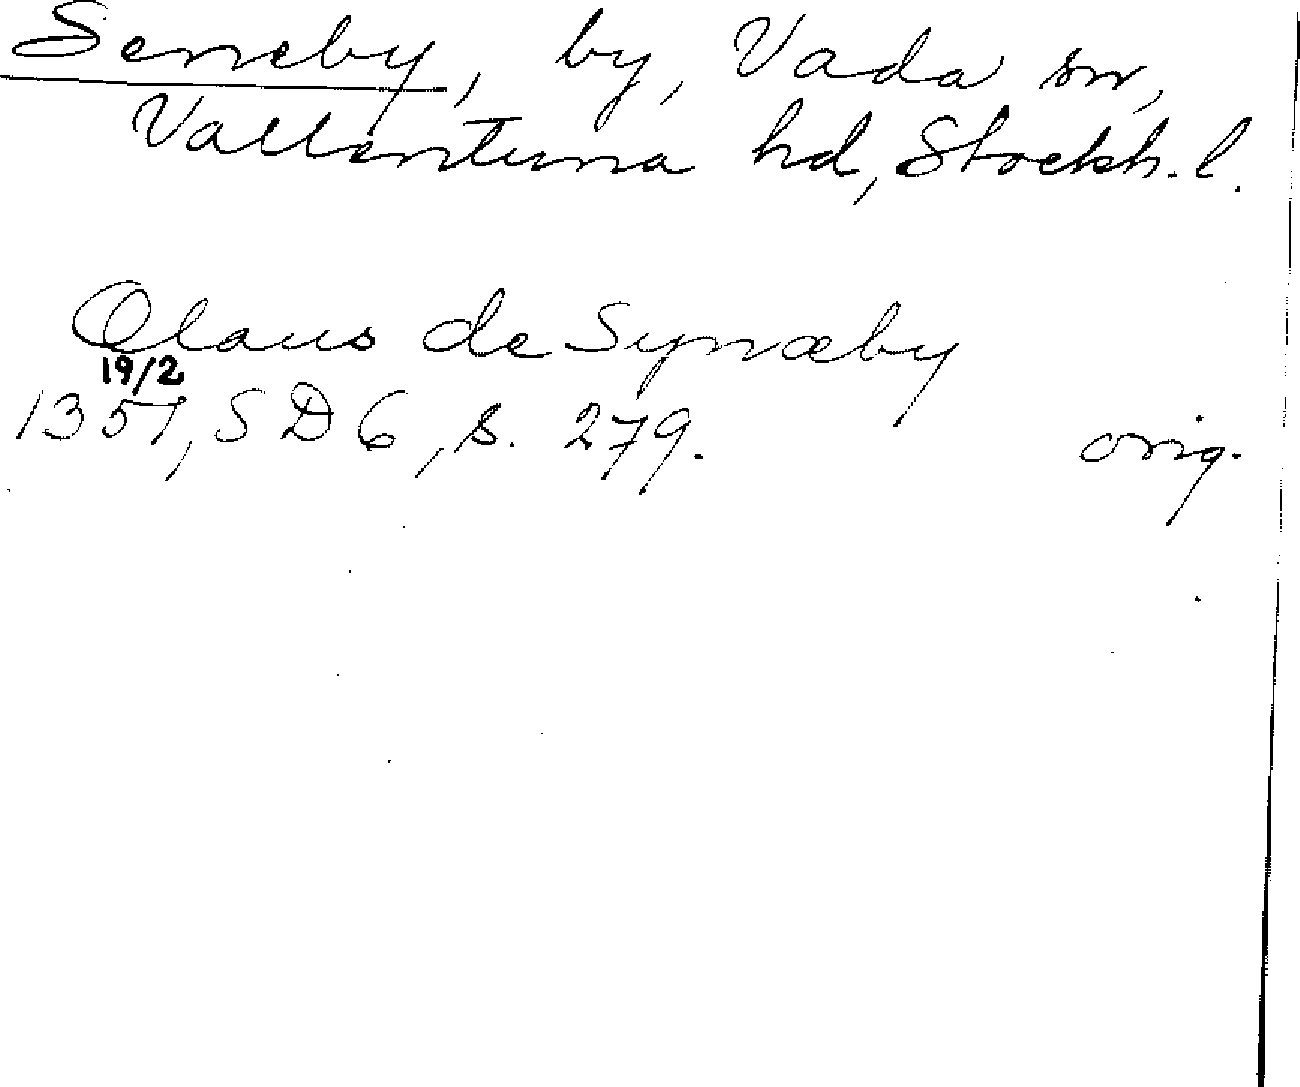 Seneby, by, Vada sn,
Vallentuna hd, Stockh. l.
Olaus de Synæby
19/2
1351, SD 6, s. 279. orig.